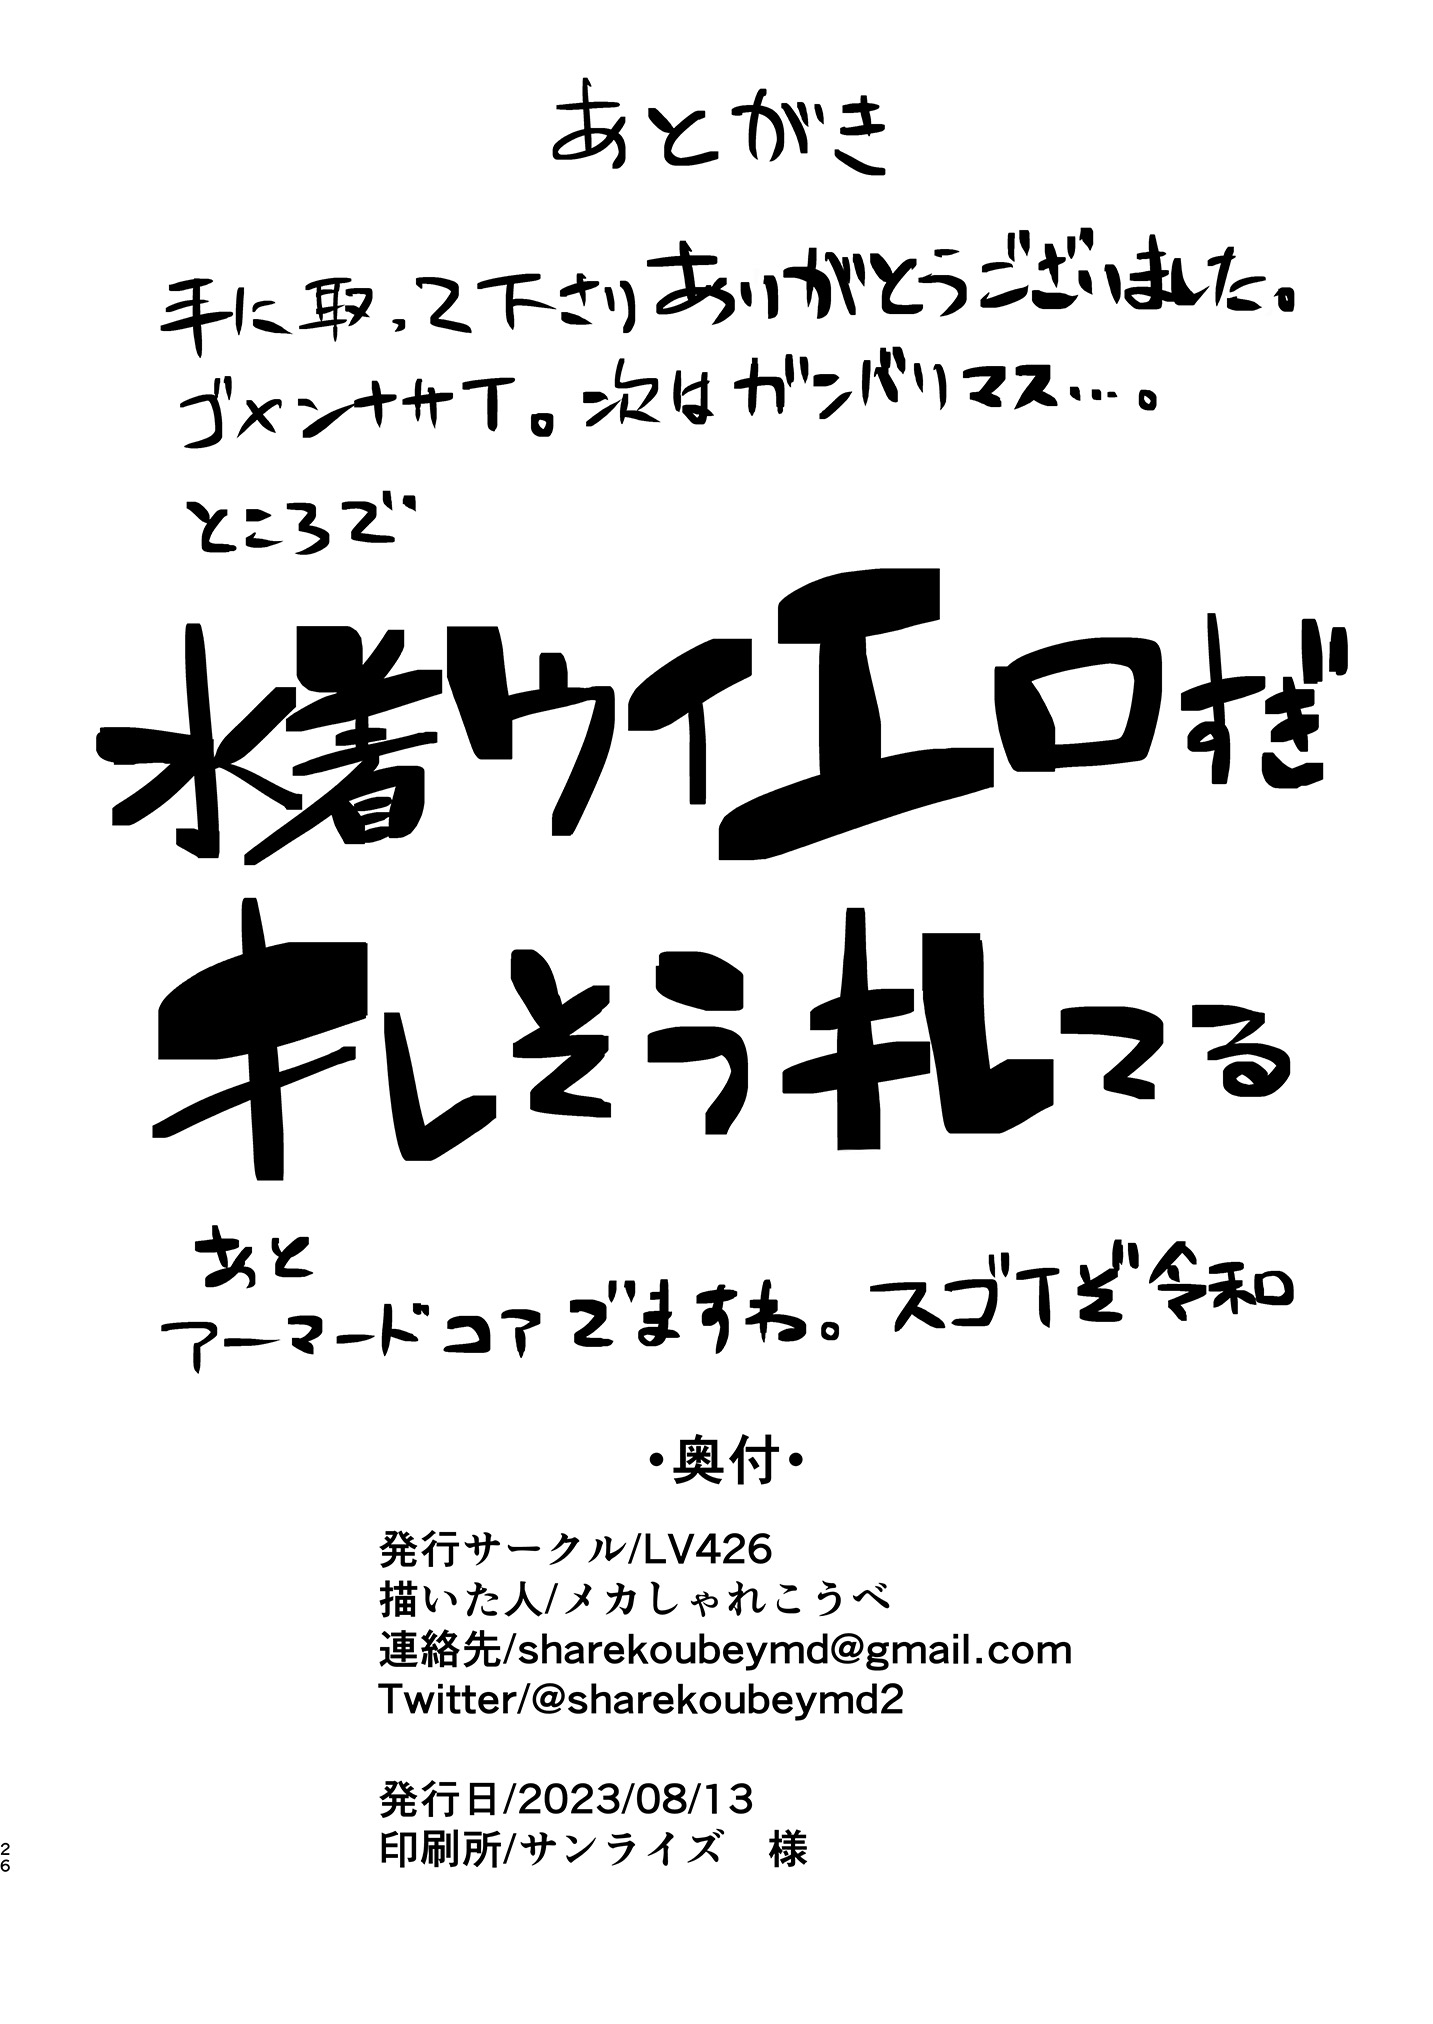 あとがき
手に取って下さりありがとうございました。
ゴメンナサイ。次はガンバリマス…。
ところで
水着ウイエロすぎ
キレそうキレてる
あと
アーマードコアでますね。スゴイぞ令和
・奥付・
発行サークル/LV426
描いた人/メカしゃれこうべ
連絡先/sharekoubeymd@gmail.com
Twitter/@sharekoubeymd2
発行日/2023/08/13
印刷所/サンライズ　様
26